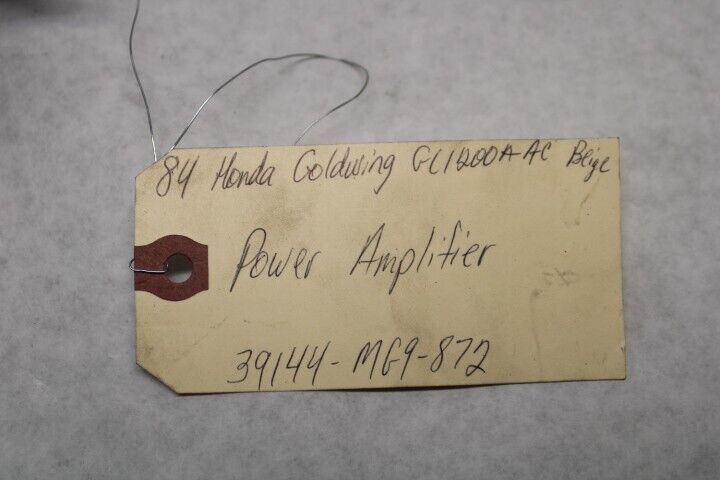 84 Honda Goldwing GL1200A AC Beige
Power Amplifier
39144-MG9-872